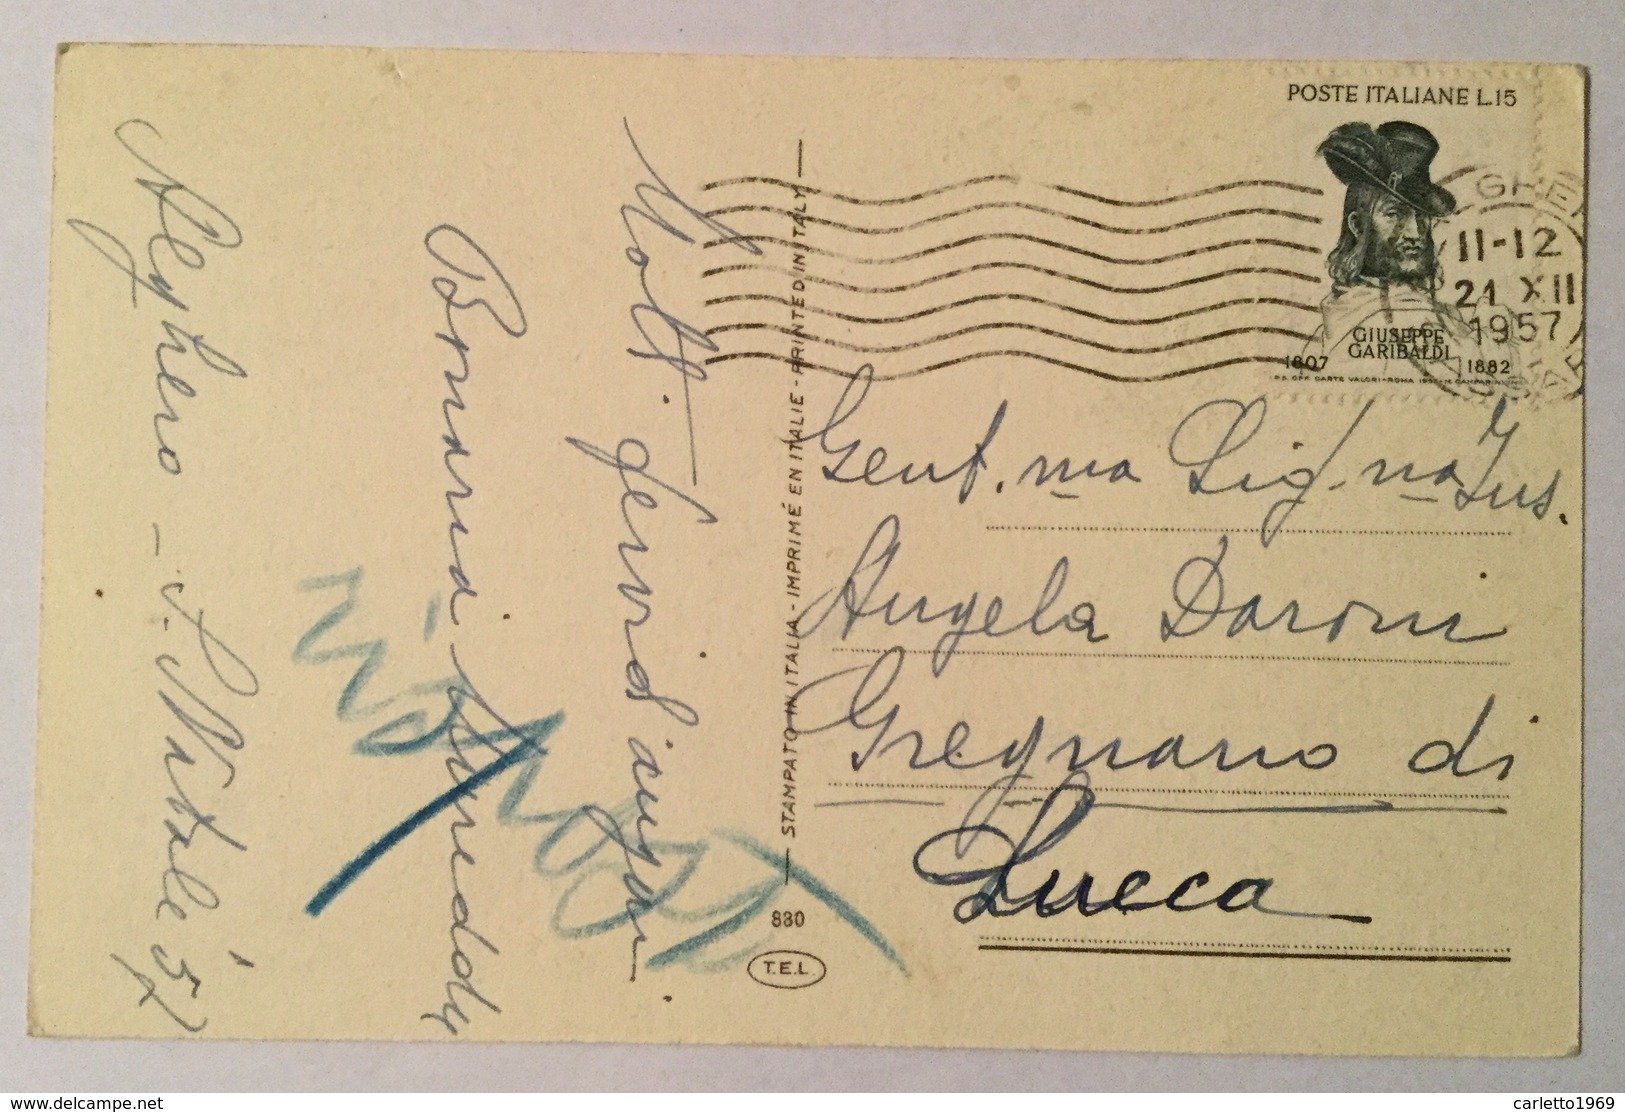 POSTE ITALIANE L.15
GIUSEPPE
GARIBALDI
1807
1882
11-12
21 XII
1957
Molti fervidi auguri
Alghero - S. Natale '57
STAMPATO IN ITALIA - IMPRIMÉ EN ITALIE - PRINTED IN ITALY
880
T.E.L.
Gent.ma Sig.na Ins.
Angela Daroni
Gregnano di
Lucca
delcampe.net
carletto1969